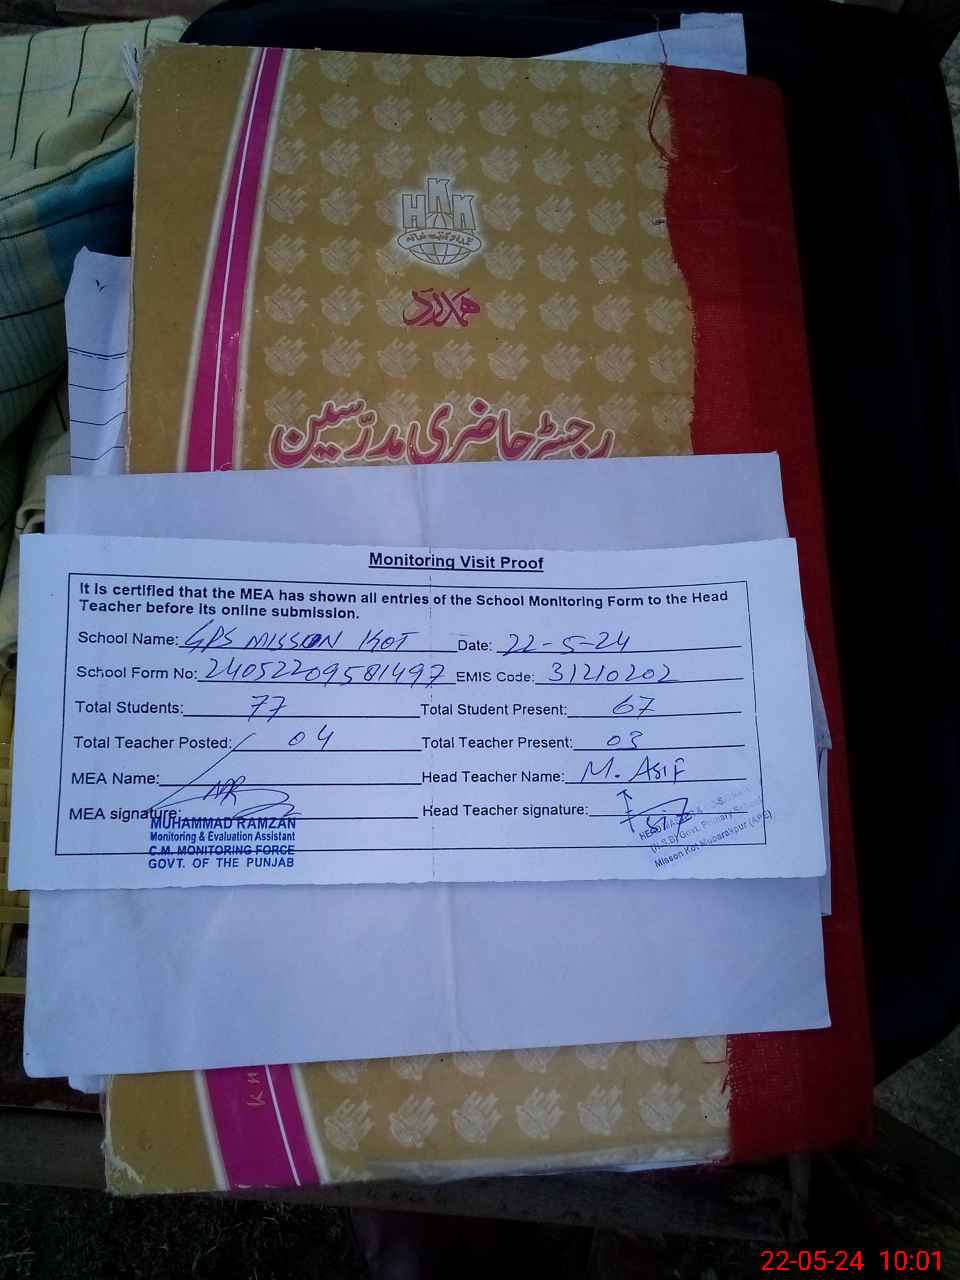 HKK
ہمدرد کتب خانہ
ہمدرد
رجسٹر حاضری مدرّسین
Monitoring Visit Proof
It is certified that the MEA has shown all entries of the School Monitoring Form to the Head
Teacher before its online submission.
School Name: GPS MISSION KOT Date: 22-5-24
School Form No: 24052209581497 EMIS Code: 31210202
Total Students: 77 Total Student Present: 67
Total Teacher Posted: 04 Total Teacher Present: 03
MEA Name: Head Teacher Name: M. ASIF
MEA signature: Head Teacher signature:
MUHAMMAD RAMZAN
Monitoring & Evaluation Assistant
C.M. MONITORING FORCE
GOVT. OF THE PUNJAB
Govt. Primary School
Misson Kot Mubarakpur (A.P.E)
22-05-24 10:01